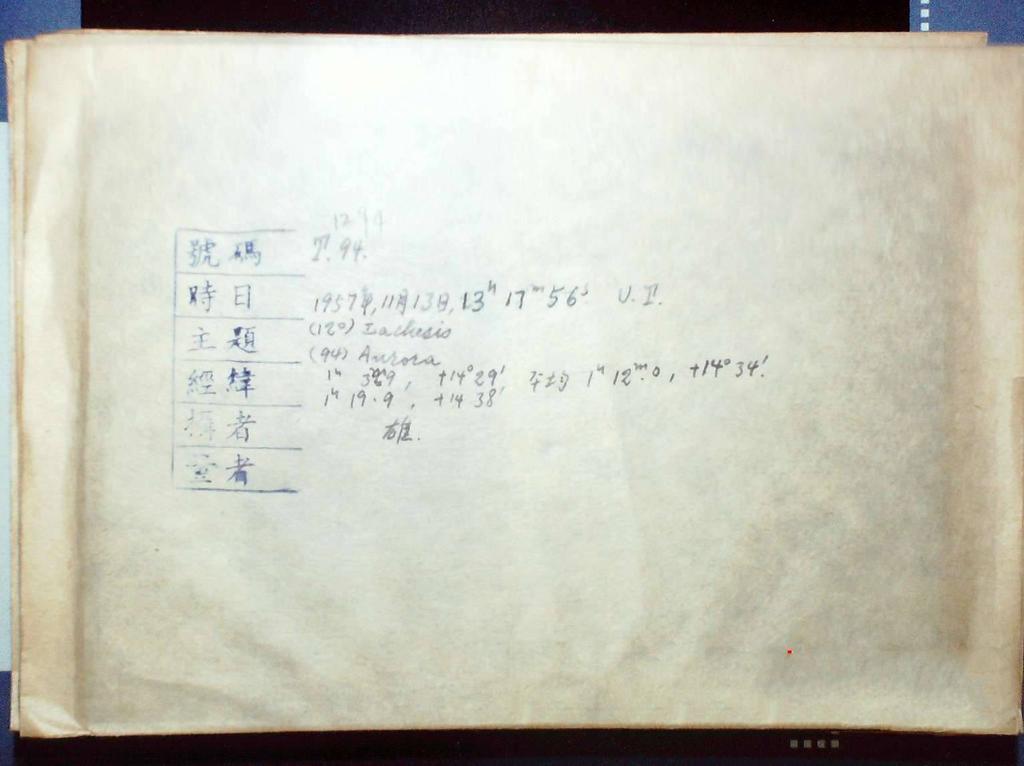 1294
號碼 T. 94.
時日 1957年,11月13日,13ʰ 17ᵐ 56ˢ U.T.
主題 (120) Lachesis
(94) Aurora
經緯 1ʰ 3ᵐ.9, +14°29′, 平均 1ʰ 12ᵐ.0, +14°34′.
1ʰ 19.9, +14 38′
攝者 雄.
者